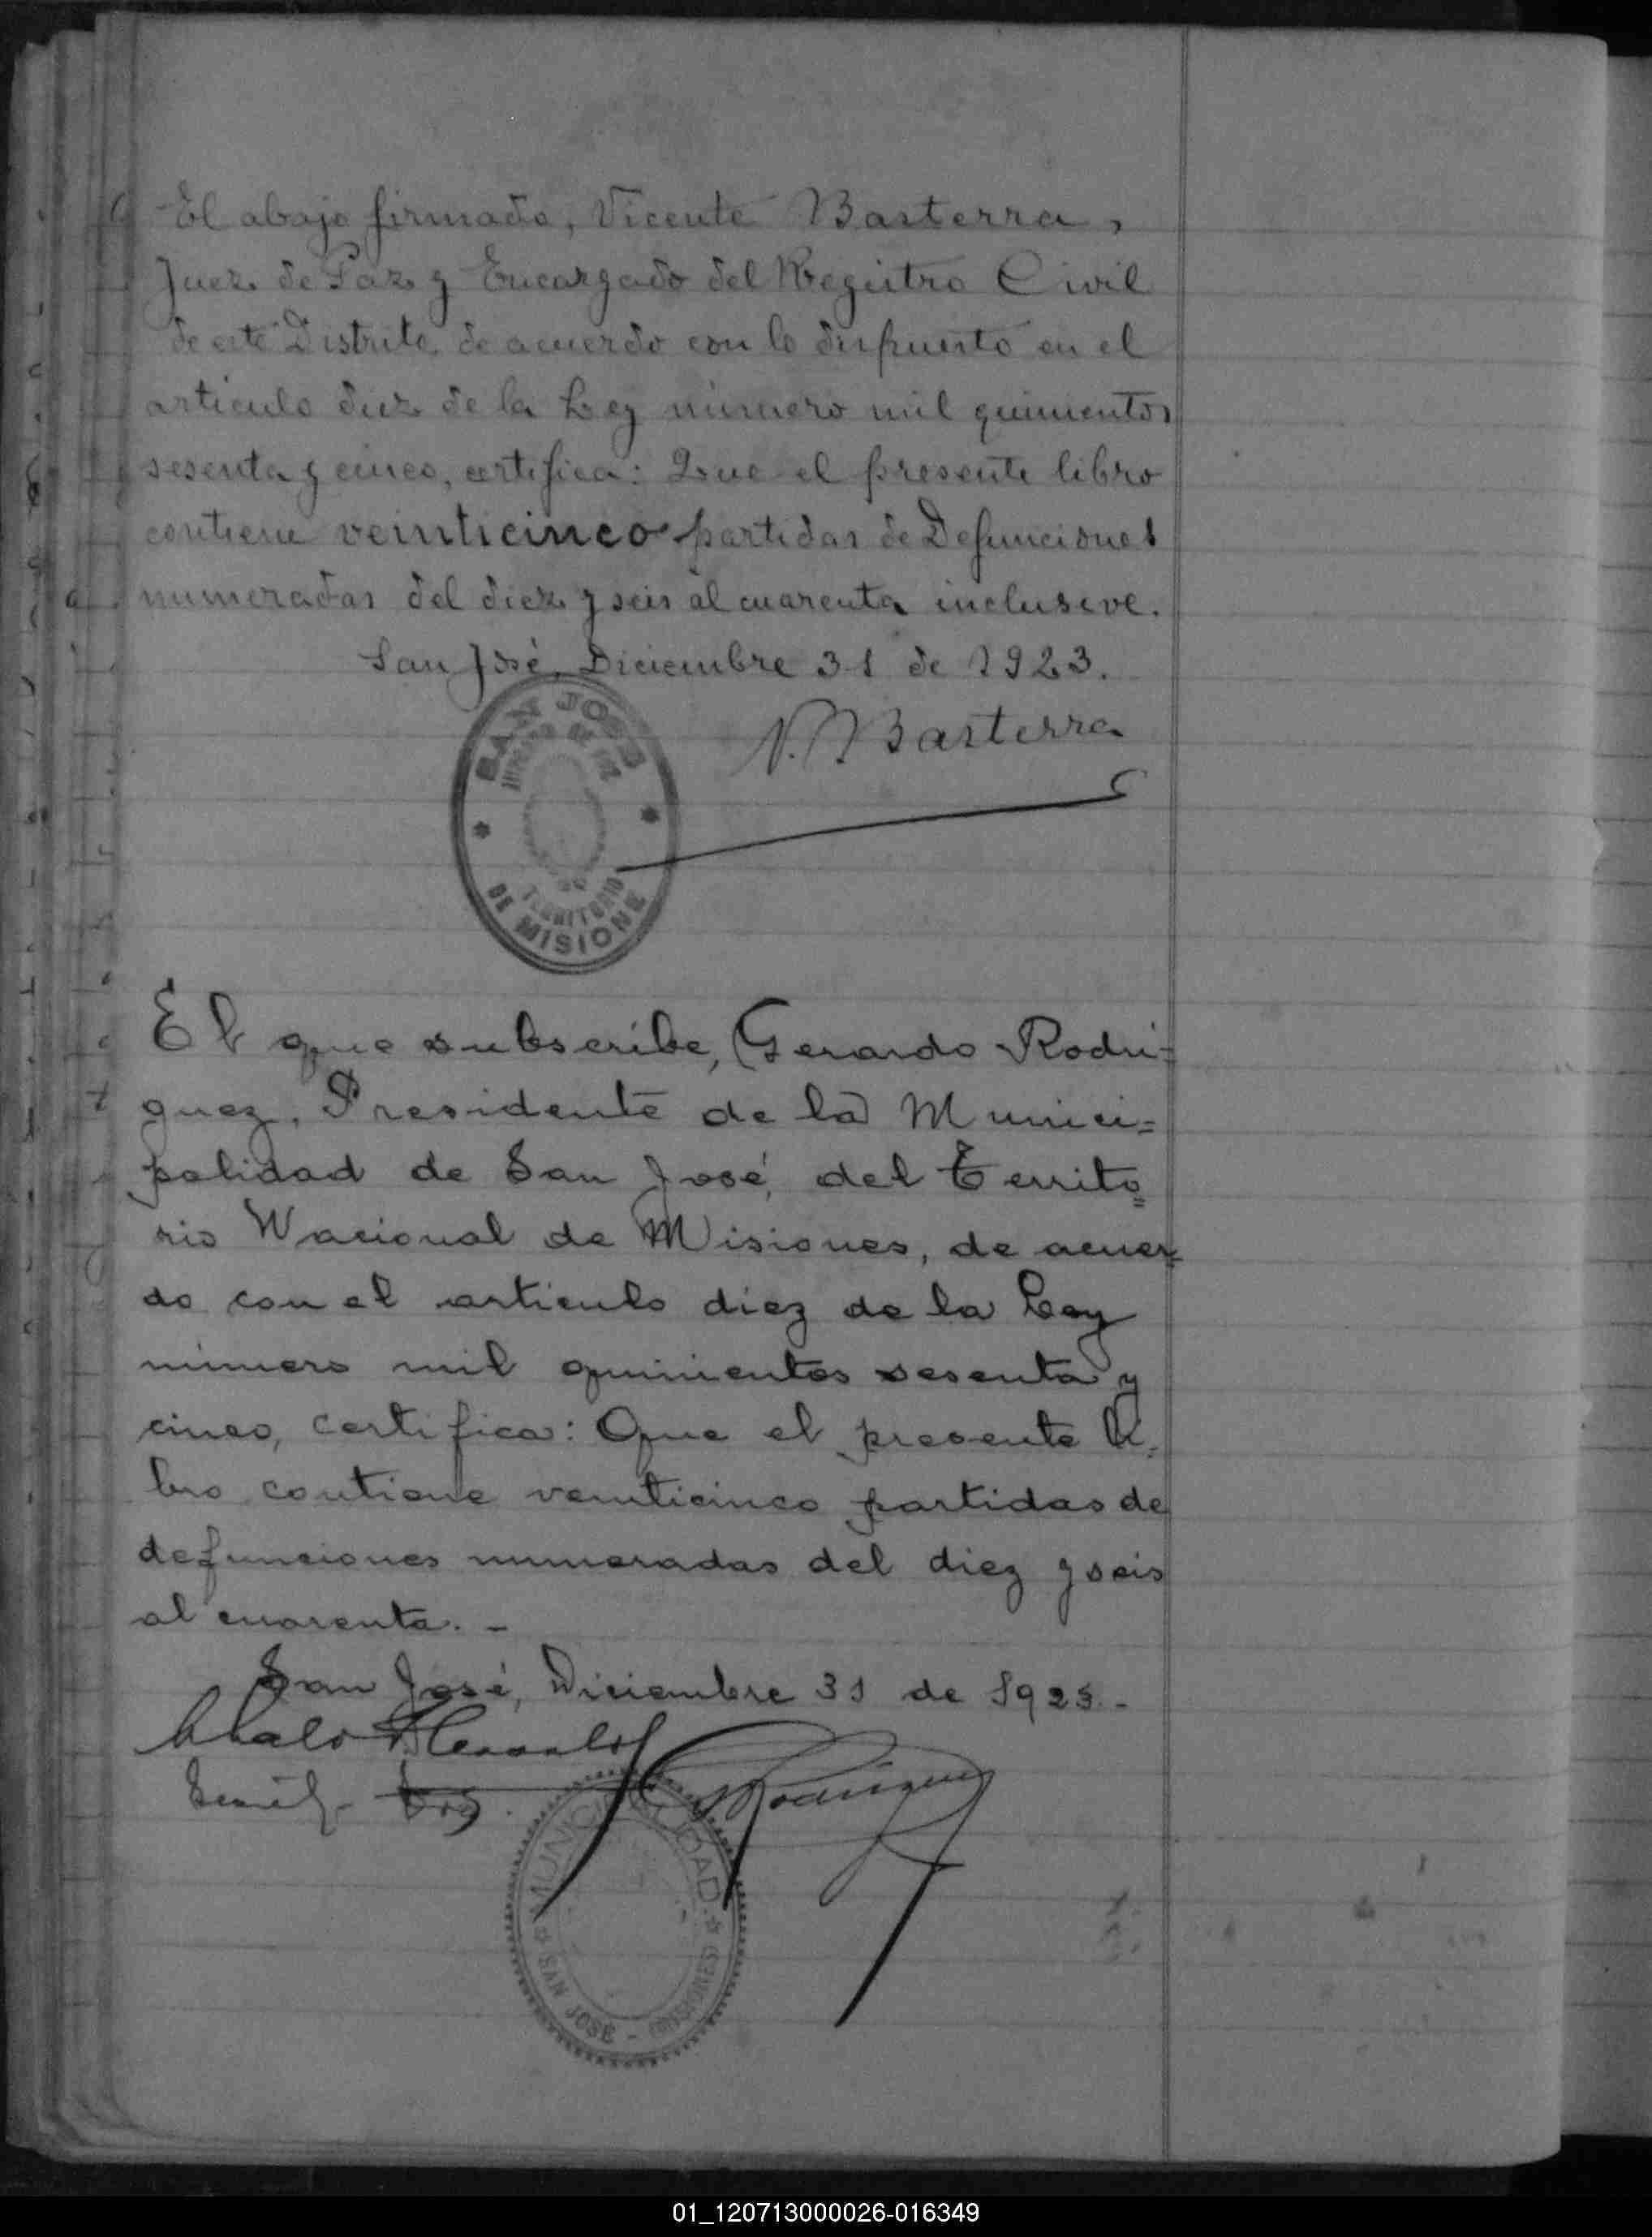 El abajo firmado, Vicente Basterra,
Juez de Paz y Encargado del Registro Civil
de este Distrito, de acuerdo con lo dispuesto en el
articulo diez de la Ley número mil quinientos
sesenta y cinco, certifica: Que el presente libro
contiene veinticinco partidas de Defunciones
numeradas del diez y seis al cuarenta inclusive.
San José, Diciembre 31 de 1923.
V. Basterra
SAN JOSE
TERRITORIO
DE MISIONE
El que subscribe, Gerardo Rodri=
guez, Presidente de la Munici=
palidad de San José, del Territo=
rio Nacional de Misiones, de acuer=
do con el articulo diez de la Ley
número mil quinientos sesenta y
cinco, certifica: Que el presente li=
bro contiene veinticinco partidas de
defunciones numeradas del diez y seis
al cuarenta. -
San José, Diciembre 31 de 1923. -
Rodriguez
MUNICIPALIDAD
SAN JOSÉ - (MISIONES)
01_120713000026-016349